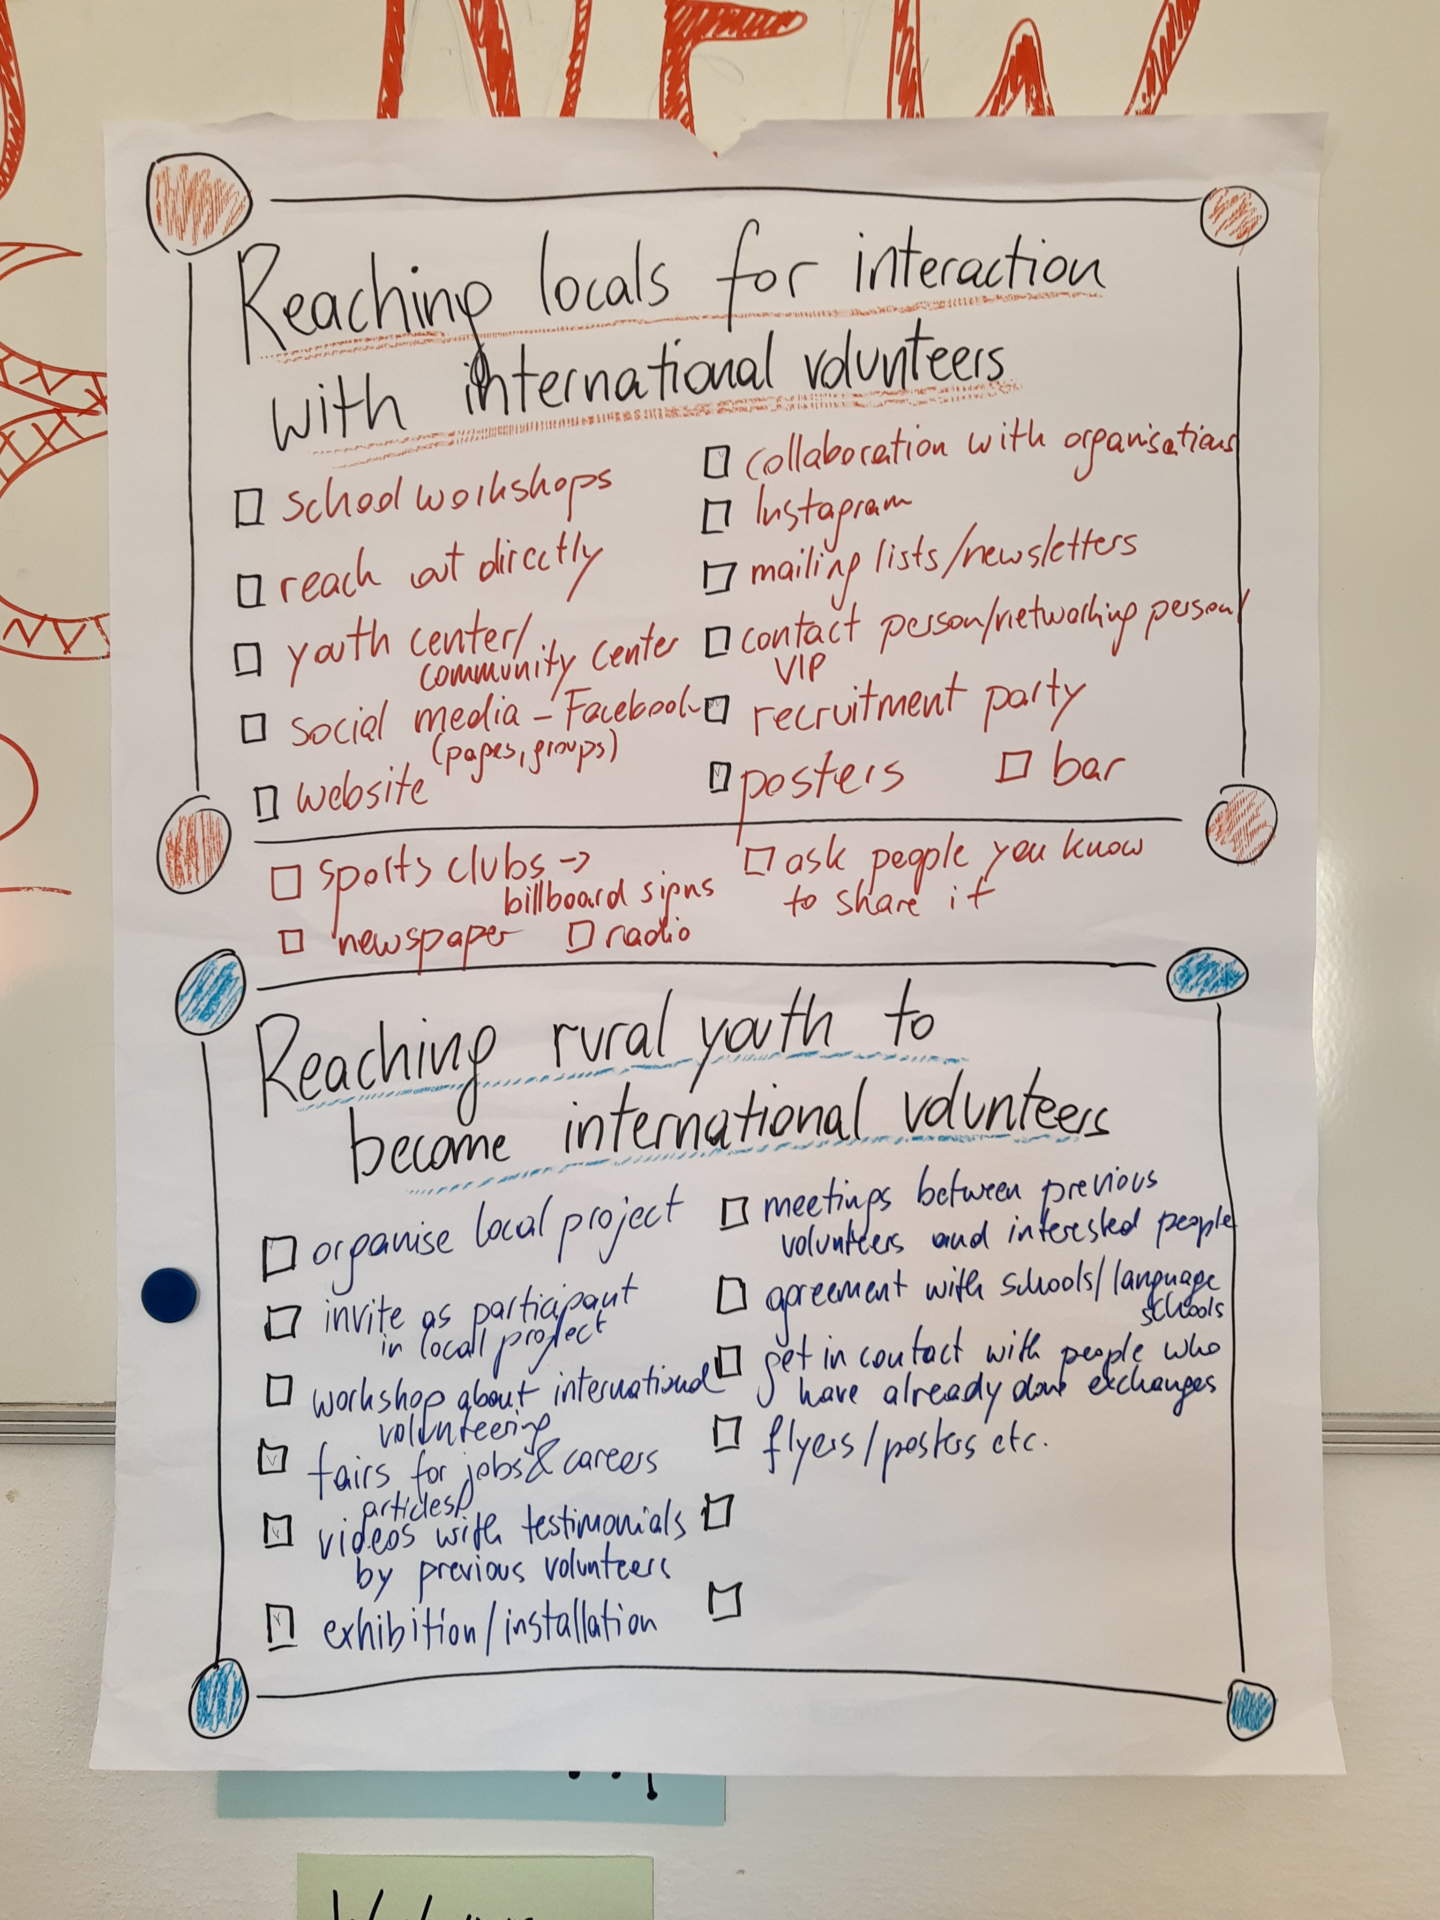 NEW
Reaching locals for interaction
with international volunteers
school workshops
reach out directly
youth center/
community center
social media - Facebook
(pages, groups)
website
collaboration with organisations
Instagram
mailing lists/newsletters
contact person/networking person/
VIP
recruitment party
posters
bar
sports clubs ->
billboard signs
newspaper
radio
ask people you know
to share it
Reaching rural youth to
become international volunteers
organise local project
invite as participant
in local project
workshop about international
volunteering
fairs for jobs & careers
articles/
videos with testimonials
by previous volunteers
exhibition/installation
meetings between previous
volunteers and interested people
agreement with schools/language
schools
get in contact with people who
have already done exchanges
flyers/posters etc.